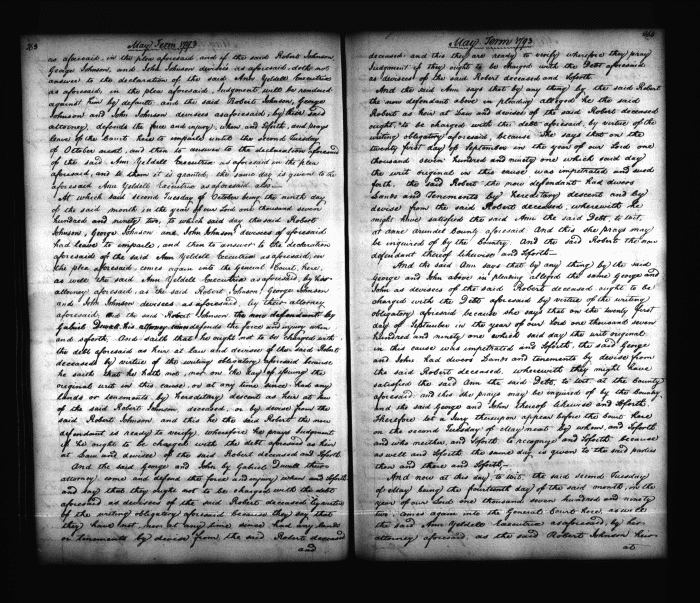 May Term 1793
as aforesaid, in the plea aforesaid, and if the said Robert Johnson
George Johnson, and John Johnson devisees as aforesaid, doth not
answer to the declaration of the said Ann Yeldell Executrix
as aforesaid, in the plea aforesaid, Judgment will be rendered
against him by default and the said Robert Johnson, George
Johnson and John Johnson devisees as aforesaid, by their said
attorney, defends the force and injury, when and so forth, and prays
leave of the Court here to imparle until the second tuesday
of October next, and then to answer to the declaration aforesaid
of the said Ann Yeldell Executrix as aforesaid in the plea
aforesaid, and to them it is granted, the same day is given to the
aforesaid Ann Yeldell Executrix as aforesaid also
At which said second Tuesday of October being the ninth day
of the said month in the year of our Lord one thousand seven
hundred and ninety two, to which said day the said Robert
Johnson, George Johnson and John Johnson devisees as aforesaid
had leave to imparle, and then to answer to the declaration
aforesaid of the said Ann Yeldell Executrix as aforesaid, in
the plea aforesaid, comes again into the General Court here,
as well the said Ann Yeldell Executrix as aforesaid, by her
attorney aforesaid, as the said Robert Johnson, George Johnson
and John Johnson devisees as aforesaid, by their attorney
aforesaid, and the said Robert Johnson the now defendant by
Gabriel Duvall his attorney comes defends the force and injury when
and so forth. And saith that he ought not to be charged with
the debt aforesaid as heir at law and devisee of the said Robert
deceased by virtue of the writing obligatory aforesaid because
he saith that he hath not, nor on the day of issuing the
original writ in this cause, or at any time since had any
lands or tenements by hereditary descent as heir at law
of the said Robert Johnson, deceased, or by devise from the
said Robert Johnson and this he the said Robert the now
defendant is ready to verify, wherefore he prays Judgment
if he ought to be charged with the debt aforesaid as heir
at Law and devisee of the said Robert deceased and so forth
And the said George and John by Gabriel Duvall their
attorney come and defend the force and injury when and so forth
and say that they ought not to be charged with the debt
aforesaid as devisees of the said Robert deceased by virtue
of the writing obligatory aforesaid because they say that
they have not, nor at any time since had any lands
or tenements by devise from the said Robert deceased
and
May Term 1793
deceased and this they are ready to verify wherefore they pray
Judgment if they ought to be charged with the Debt aforesaid
as devisees of the said Robert deceased and so forth
And the said Ann says that by any thing by the said Robert
the now defendant above in pleading alleged he the said
Robert as heir at Law and devisee of the said Robert deceased
ought to be charged with the debt aforesaid by virtue of the
writing obligatory aforesaid, because She says that on the
twenty first day of September in the year of our Lord one
thousand seven hundred and ninety one which said day
the writ original in this cause was impetrated and sued
forth, the said Robert the now defendant had divers
Lands and Tenements by Hereditary descent and by
devise from the said Robert deceased, wherewith he
might have satisfied the said Ann the said Debt, to wit,
at anne arundel County aforesaid And this she prays may
be inquired of by the Country. And the said Robert the now
defendant thereof likewise and so forth
And the said Ann says that by any thing by the said
George and John above in pleading alleged the same George and
John as devisees of the said Robert deceased ought to be
charged with the Debt aforesaid by virtue of the writing
obligatory aforesaid because she says that on the twenty first
day of September in the year of our Lord one thousand seven
hundred and ninety one which said day the writ original
in this cause was impetrated and so forth, the said George
and John had divers Lands and tenements by devise from
the said Robert deceased, wherewith they might have
satisfied the said Ann the said Debt, to wit, at the County
aforesaid, and this she prays may be inquired of by the Country
and the said George and John thereof likewise and so forth.
Therefore let a Jury thereupon appear before the Court here
on the second tuesday of May next by whom, and so forth
and who neither, and so forth to recognize and so forth because
as well and so forth the same day is given to the said parties
then and there and so forth.
And now at this day, to wit, the said second Tuesday
of May being the fourteenth day of the said month, in the
year of our Lord one thousand seven hundred and ninety
two, comes again into the General Court here, as well
the said Ann Yeldell Executrix as aforesaid, by her
attorney aforesaid, as the said Robert Johnson heir
at